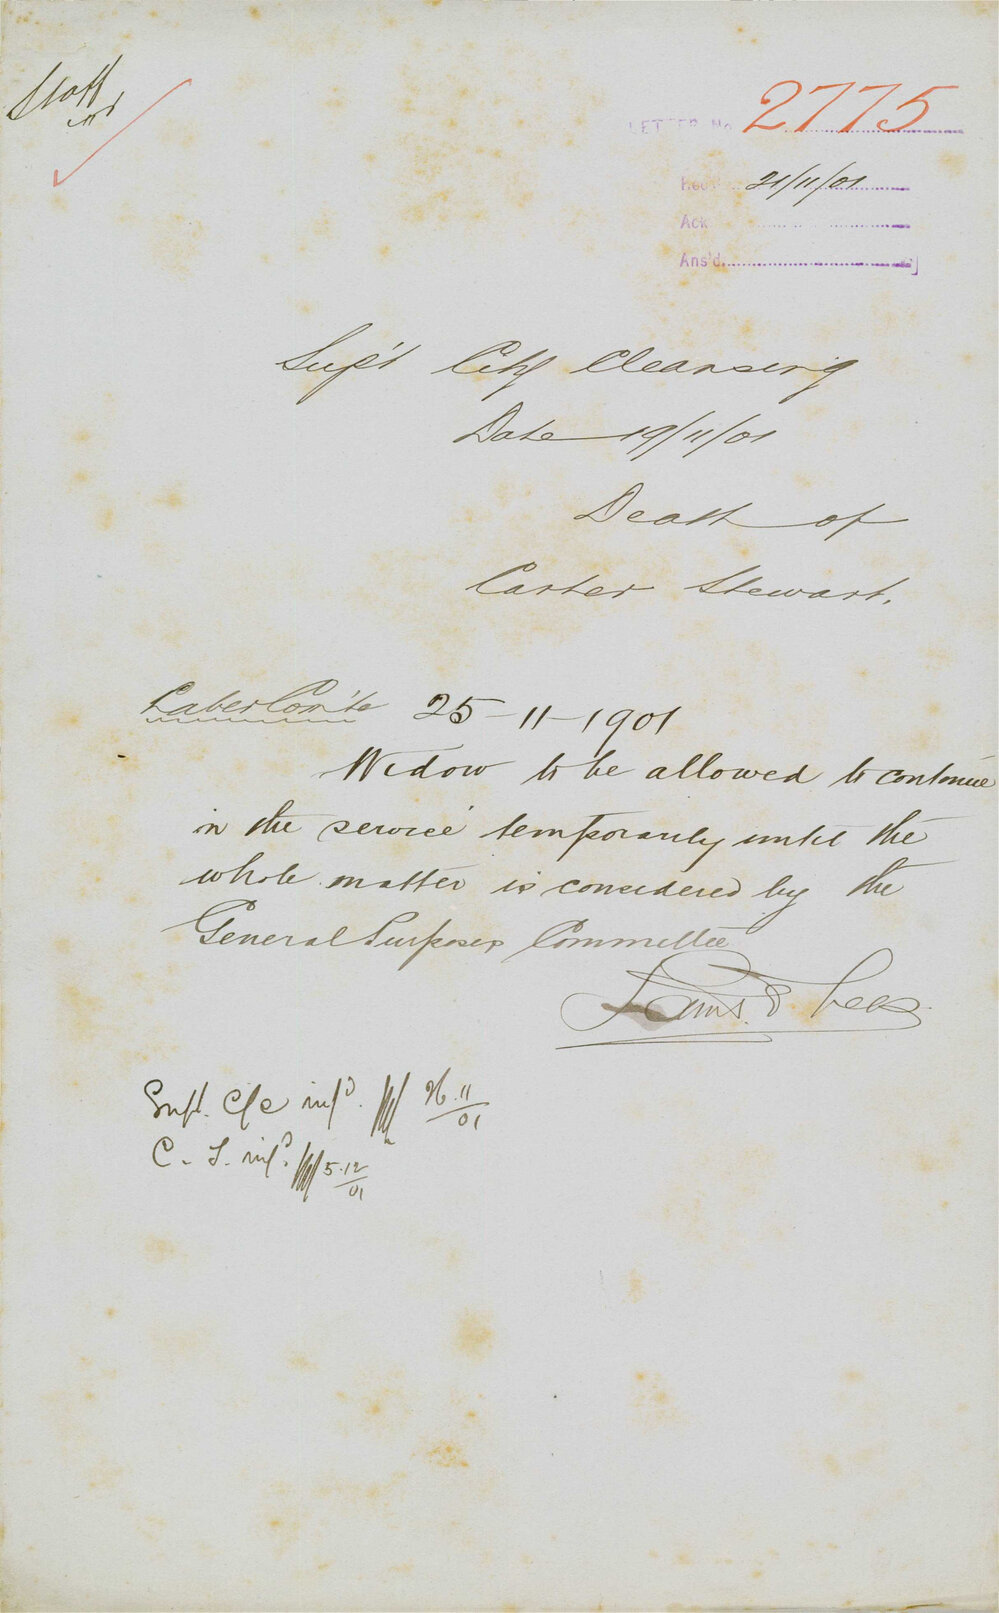 Staff
LETTER No. 2775
Rec'd 21/11/01
Ack
Ans'd
Supt City Cleansing
Date 19/11/01
Death of
Carter Stewart.
Labor Com'te 25-11-1901
Widow to be allowed to continue
in the service temporarily until the
whole matter is considered by the
General Purposes Committee
Supt. C/C inf'd. 26.11/01
C. S. inf'd. 5.12/01